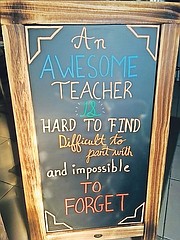 An
AWESOME
TEACHER
IS
HARD TO FIND
Difficult to
part with
and impossible
TO
FORGET